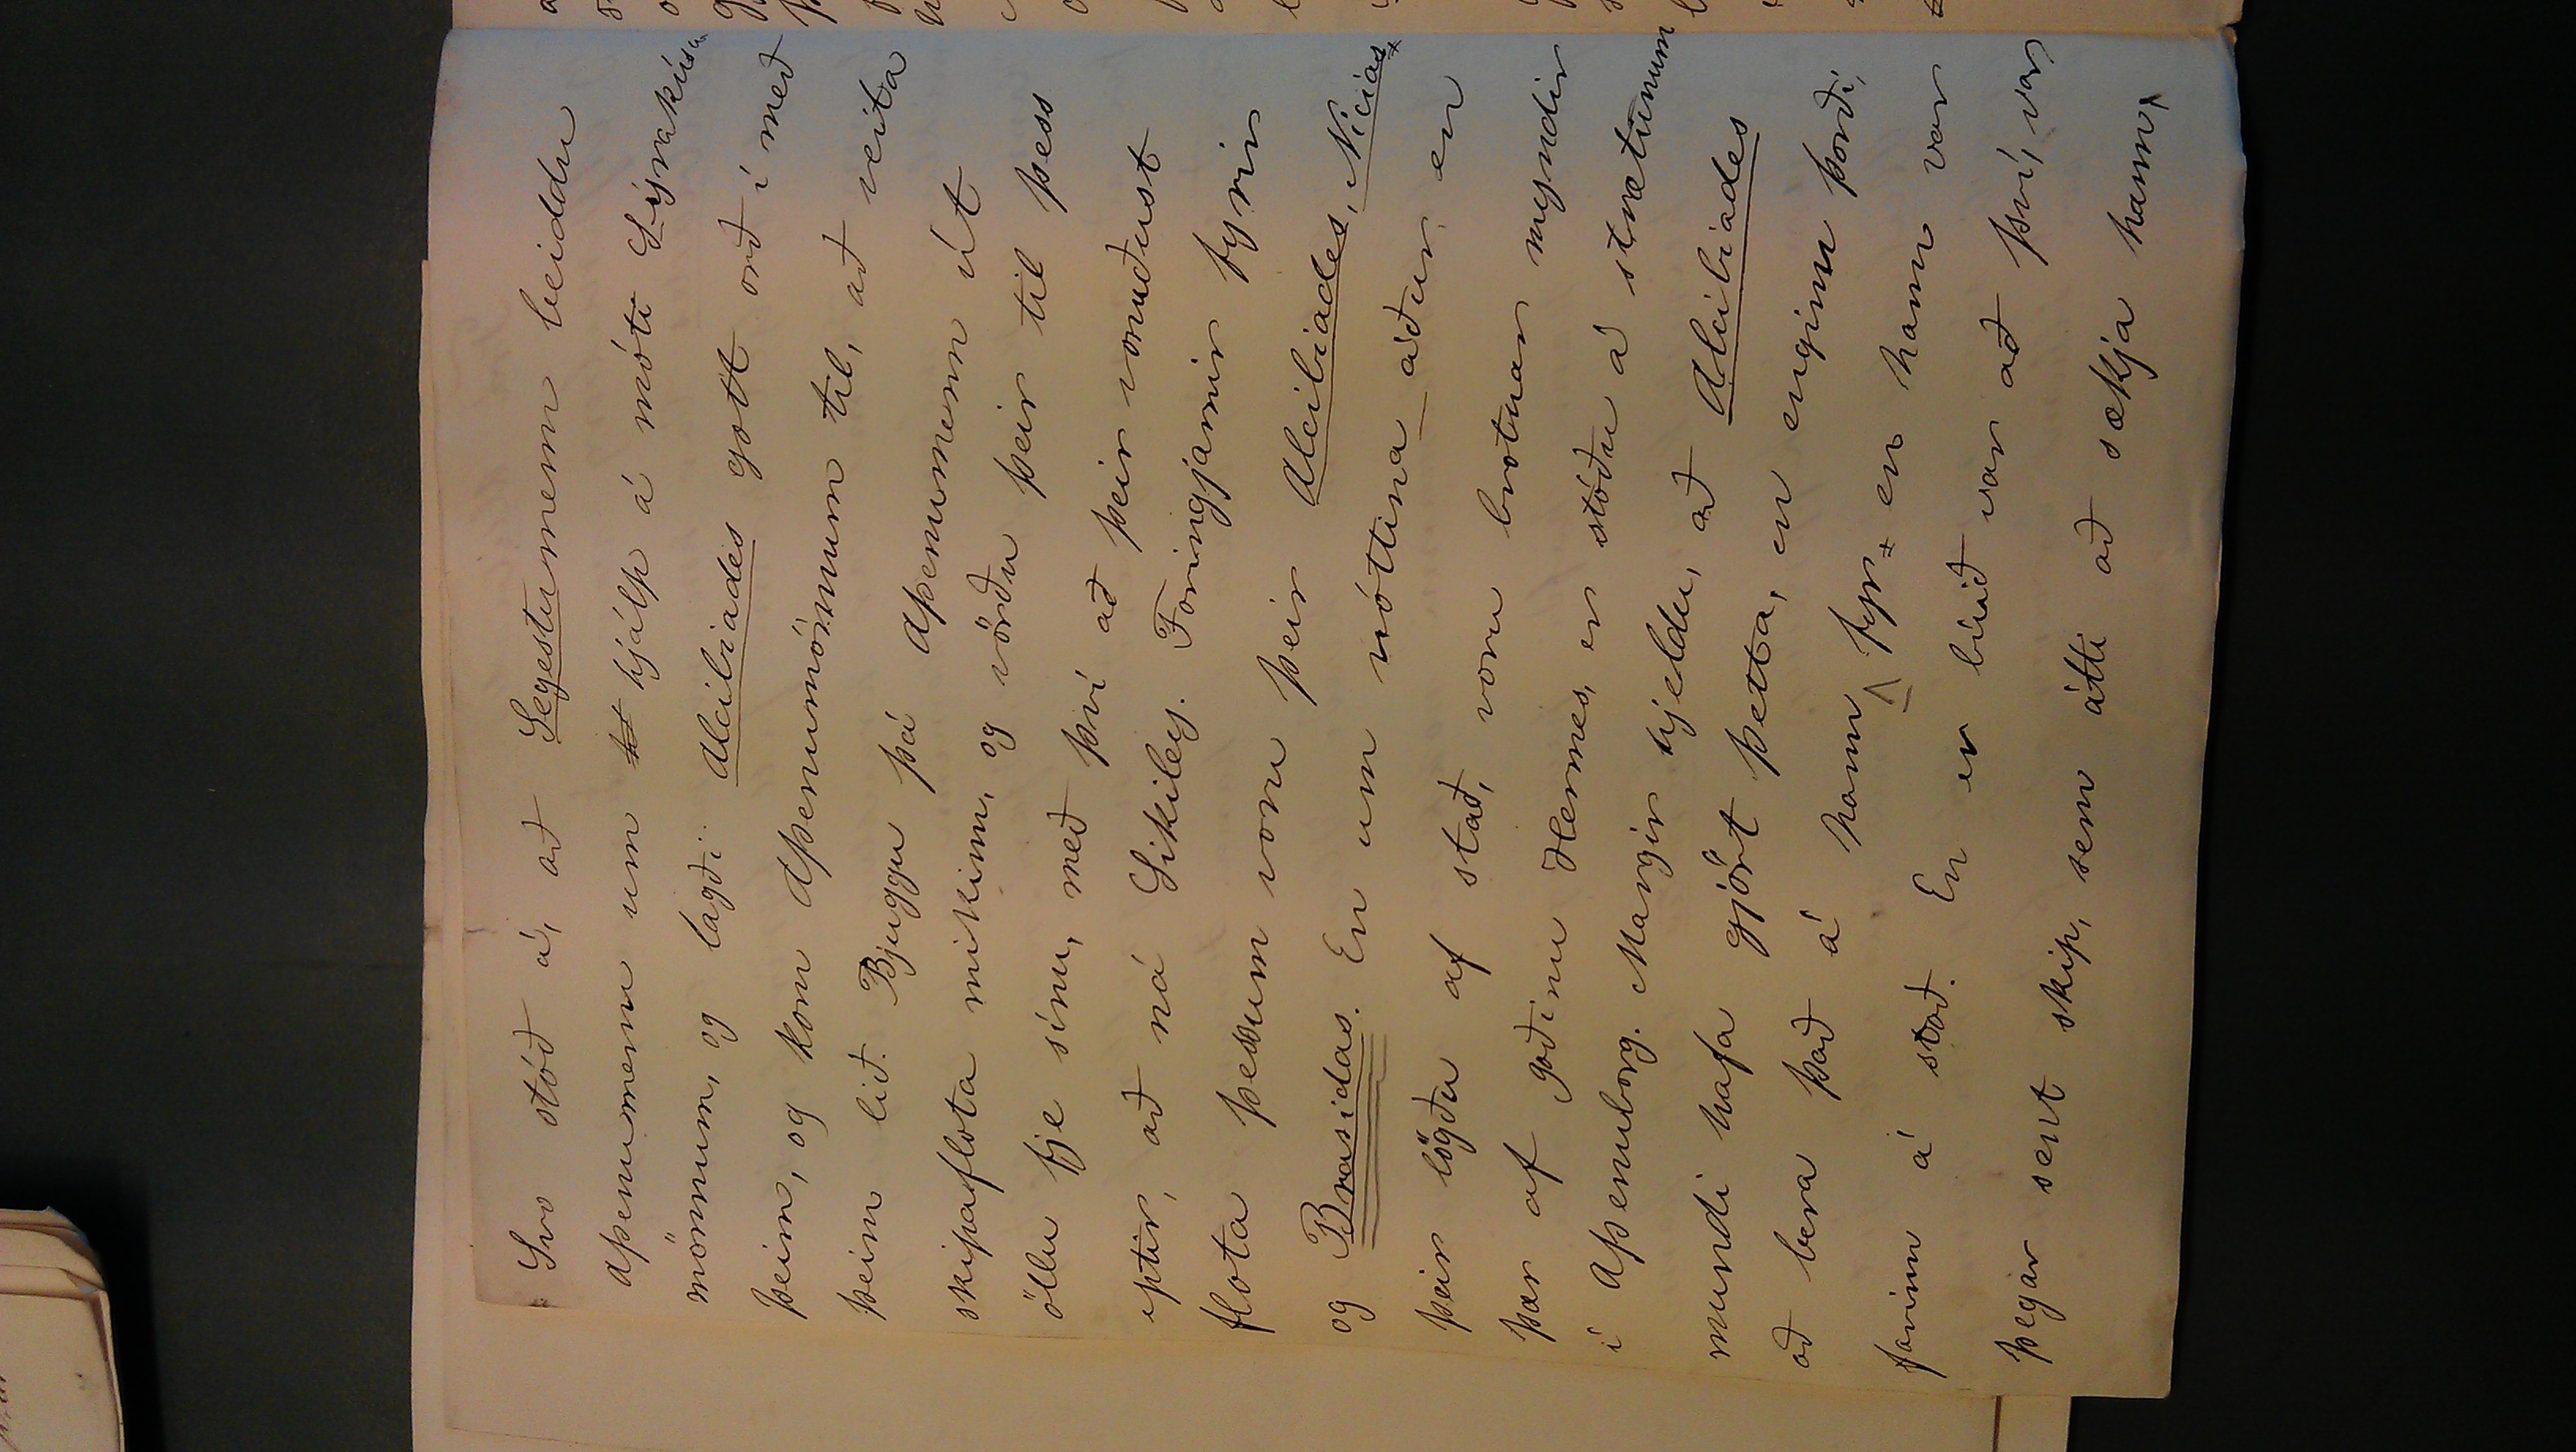 Svo stóð á, að Segestumenn beiddu
Aþenumenn um hjálp á móti Sýrakúsu
mönnum, og lagði Alcibiades gott orð í með
þeim, og kom Aþenumönnum til, að veita
þeim lið. Bjuggu þá Aþenumenn út
skipaflota mikinn, og vörðu þeir til þess
öllu fje sínu, með því að þeir vonuðust
eptir, að ná Sikiley. Foringjarnir fyrir
flota þessum voru þeir Alcibiades, Nicias
og Brasidas. En um nóttina áður en
þeir lögðu af stað, voru brotnar myndir
þær af goðinu Hermes, er stóðu á strætunum
í Aþenuborg. Margir hjeldu, að Alcibiades
mundi hafa gjört þetta, en enginn þorði,
að bera það á hann fyr en hann var
farinn á stað. En er búið var að því, var
þegar sent skip, sem átti að sækja hann,